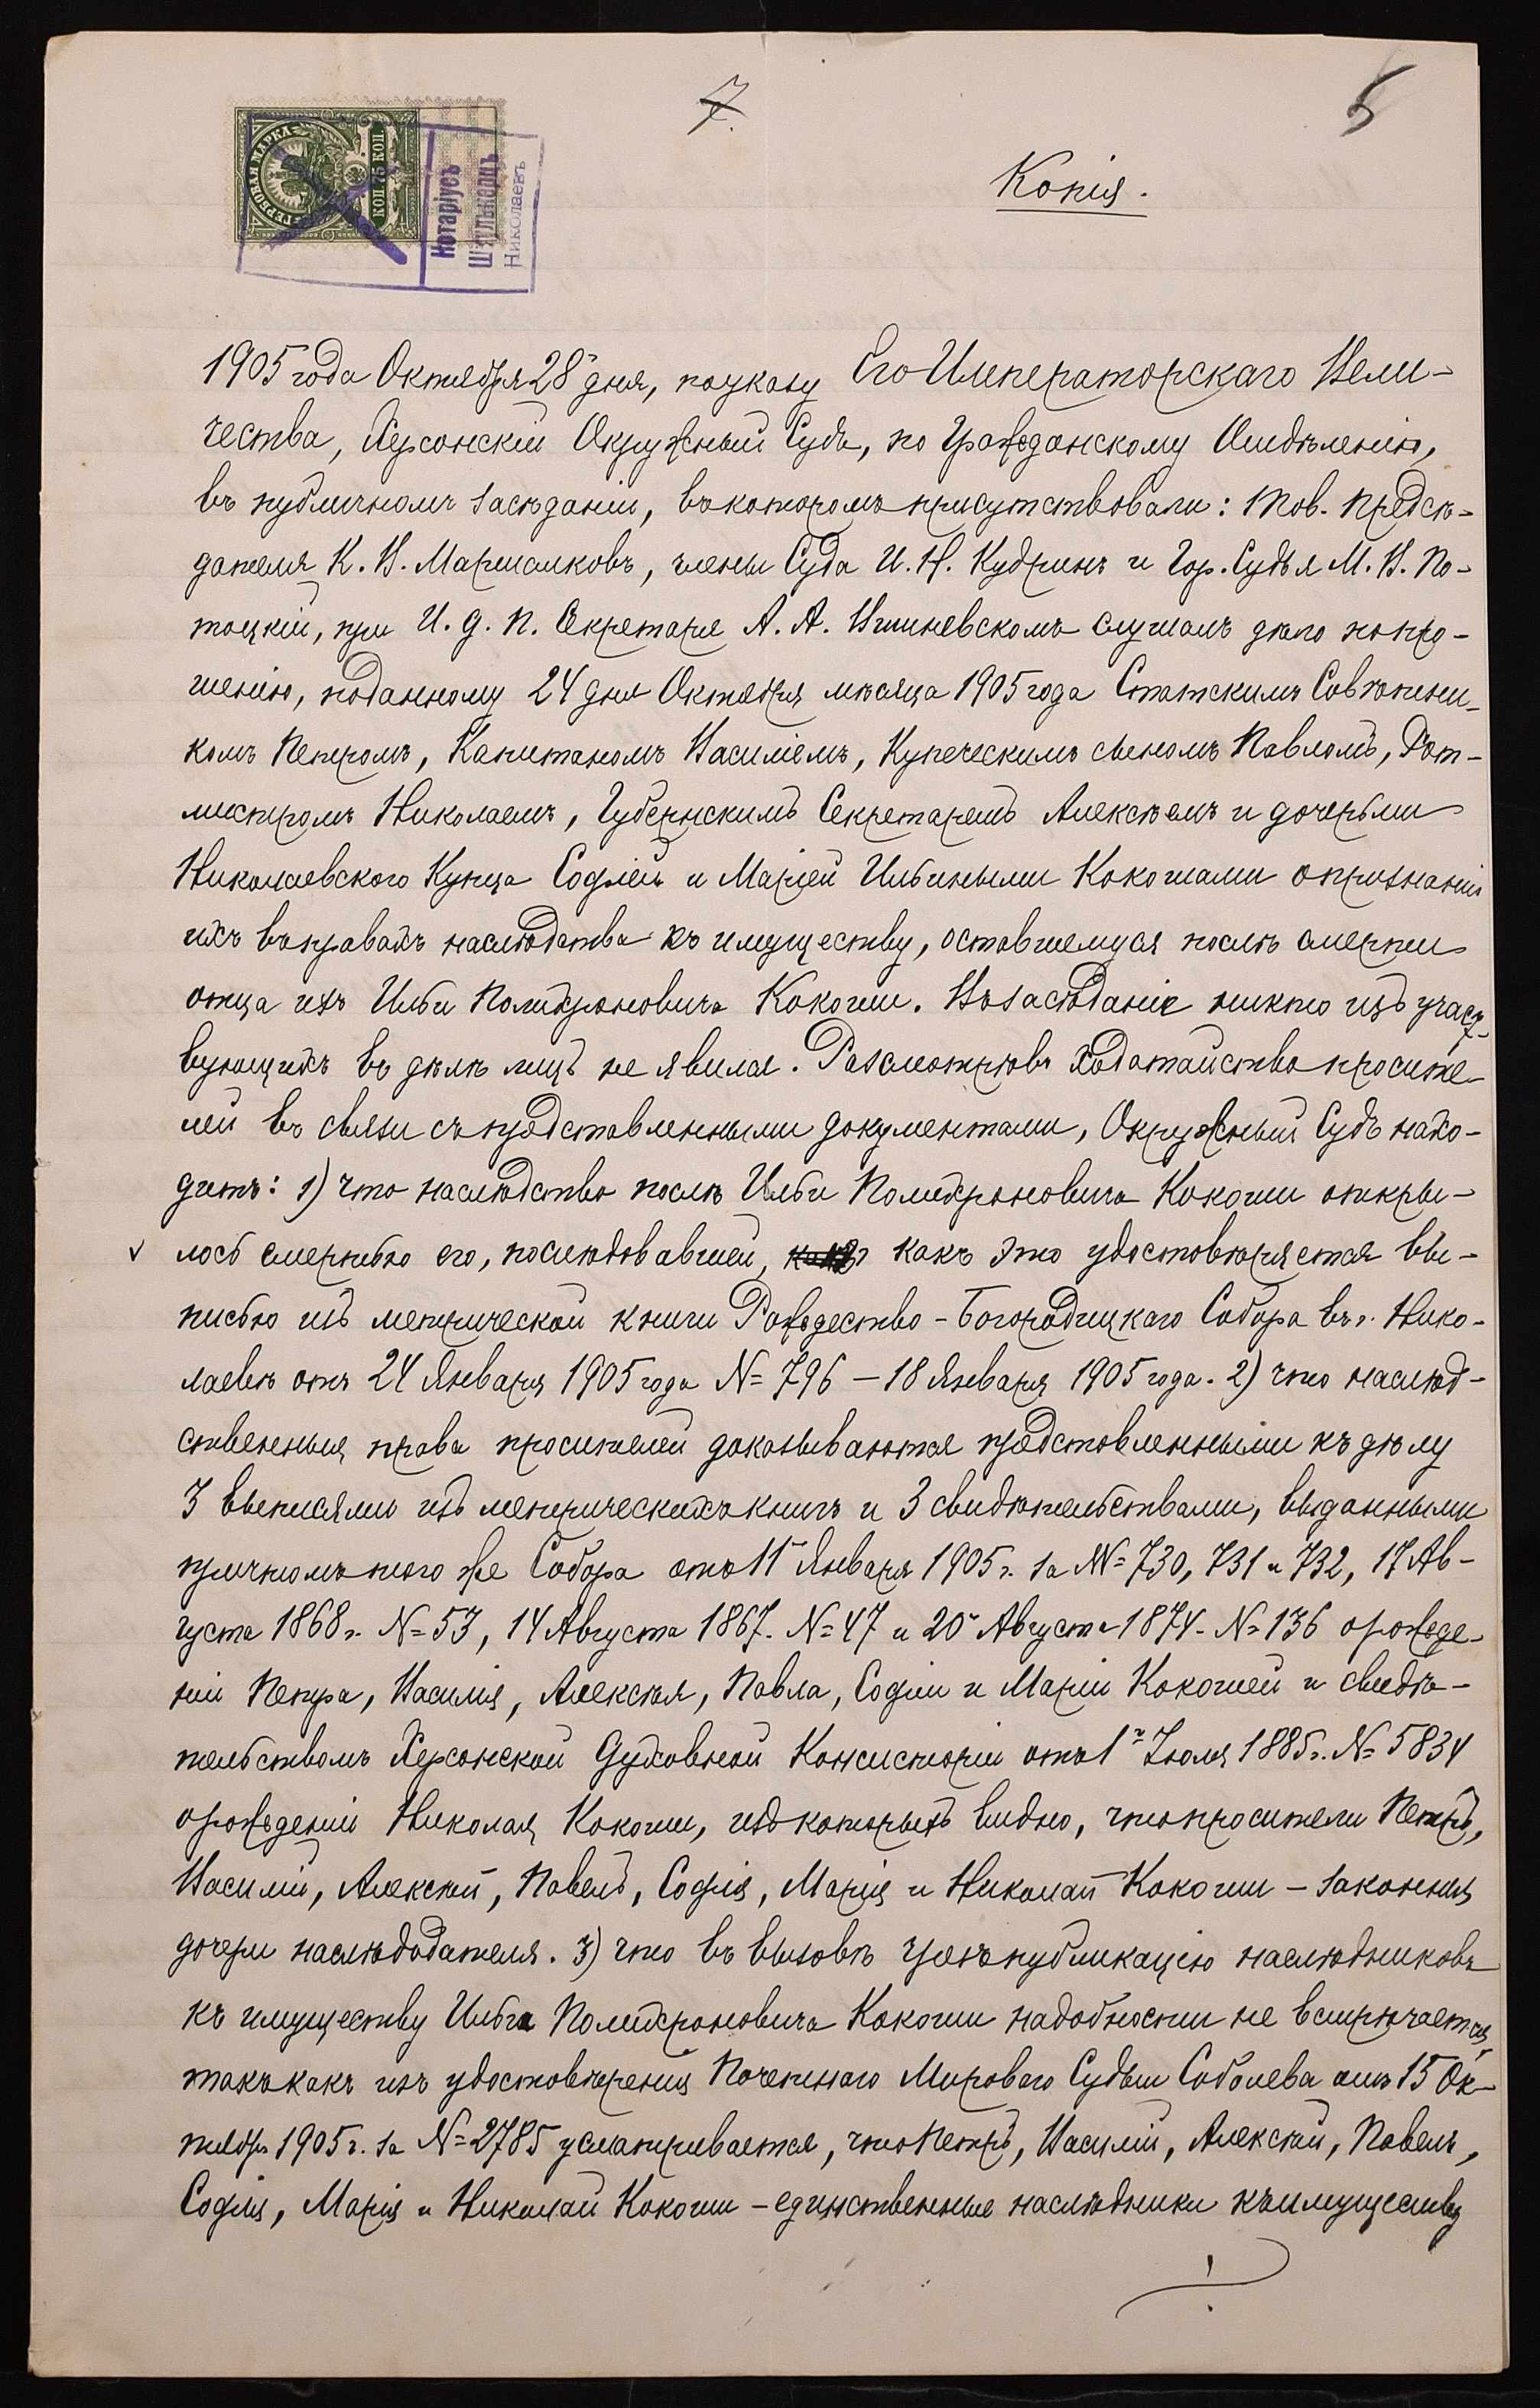 7.
5
Копія.
ГЕРБОВАЯ МАРКА
КОП. 75 КОП.
Нотаріусъ
Николаевъ
1905 года Октября 28 дня, по указу Его Императорскаго Вели-
чества, Херсонскій Окружный Судъ, по Гражданскому Отдѣленію,
въ публичномъ засѣданіи, въ которомъ присутствовали: Тов. Предсѣ-
дателя К. В. Маршалковъ, члены Суда И. Н. Кудринъ и Гор. Судья М. В. По-
тоцкій, при И. д. п. Секретаря А. А. Вишневскомъ слушалъ дѣло по про-
шенію, поданному 24 дня Октября мѣсяца 1905 года Статскимъ Совѣтни-
комъ Петромъ, Капитаномъ Василіемъ, Купеческимъ сыномъ Павломъ, Рот-
мистромъ Николаемъ, Губернскимъ Секретаремъ Алексѣемъ и дочерьми
Николаевскаго Купца Софіей и Маріей Ильиными Кокошами о признаніи
ихъ въ правахъ наслѣдства къ имуществу, оставшемуся послѣ смерти
отца ихъ Ильи Полихроновича Кокоши. Въ засѣданіе никто изъ участ-
вующихъ въ дѣлѣ лицъ не явился. Разсмотрѣвъ ходатайство просите-
лей въ связи съ представленными документами, Окружный Судъ нахо-
дитъ: 1) что наслѣдство послѣ Ильи Полихроновича Кокоши откры-
лось смертью его, послѣдовавшей, какъ это удостовѣряется вы-
писью изъ метрической книги Рождество-Богородицкаго Собора въ г. Нико-
лаевѣ отъ 24 Января 1905 года № 796 — 18 Января 1905 года. 2) что наслѣд-
ственныя права просителей доказываются представленными къ дѣлу
3 выписями изъ метрическихъ книгъ и 3 свидѣтельствами, выданными
причтомъ того же Собора отъ 11 Января 1905 г. за №№ 730, 731 и 732, 17 Ав-
густа 1868 г. № 53, 14 Августа 1867. № 47 и 20 Августа 1874. № 136 о рожде-
ніи Петра, Василія, Алексѣя, Павла, Софіи и Маріи Кокошей и свидѣ-
тельствомъ Херсонской Духовной Консисторіи отъ 1го Іюля 1885 г. № 5834
о рожденіи Николая Кокоши, изъ которыхъ видно, что просители Петръ,
Василій, Алексѣй, Павелъ, Софія, Марія и Николай Кокоши — законныя
дочери наслѣдодателя. 3) что въ вызовѣ чрезъ публикацію наслѣдниковъ
къ имуществу Ильи Полихроновича Кокоши надобности не встрѣчается,
такъ какъ изъ удостовѣренія Почетнаго Мирового Судьи Соболева отъ 15 Ок-
тября 1905 г. за № 2785 усматривается, что Петръ, Василій, Алексѣй, Павелъ,
Софія, Марія и Николай Кокоши — единственные наслѣдники къ имуществу